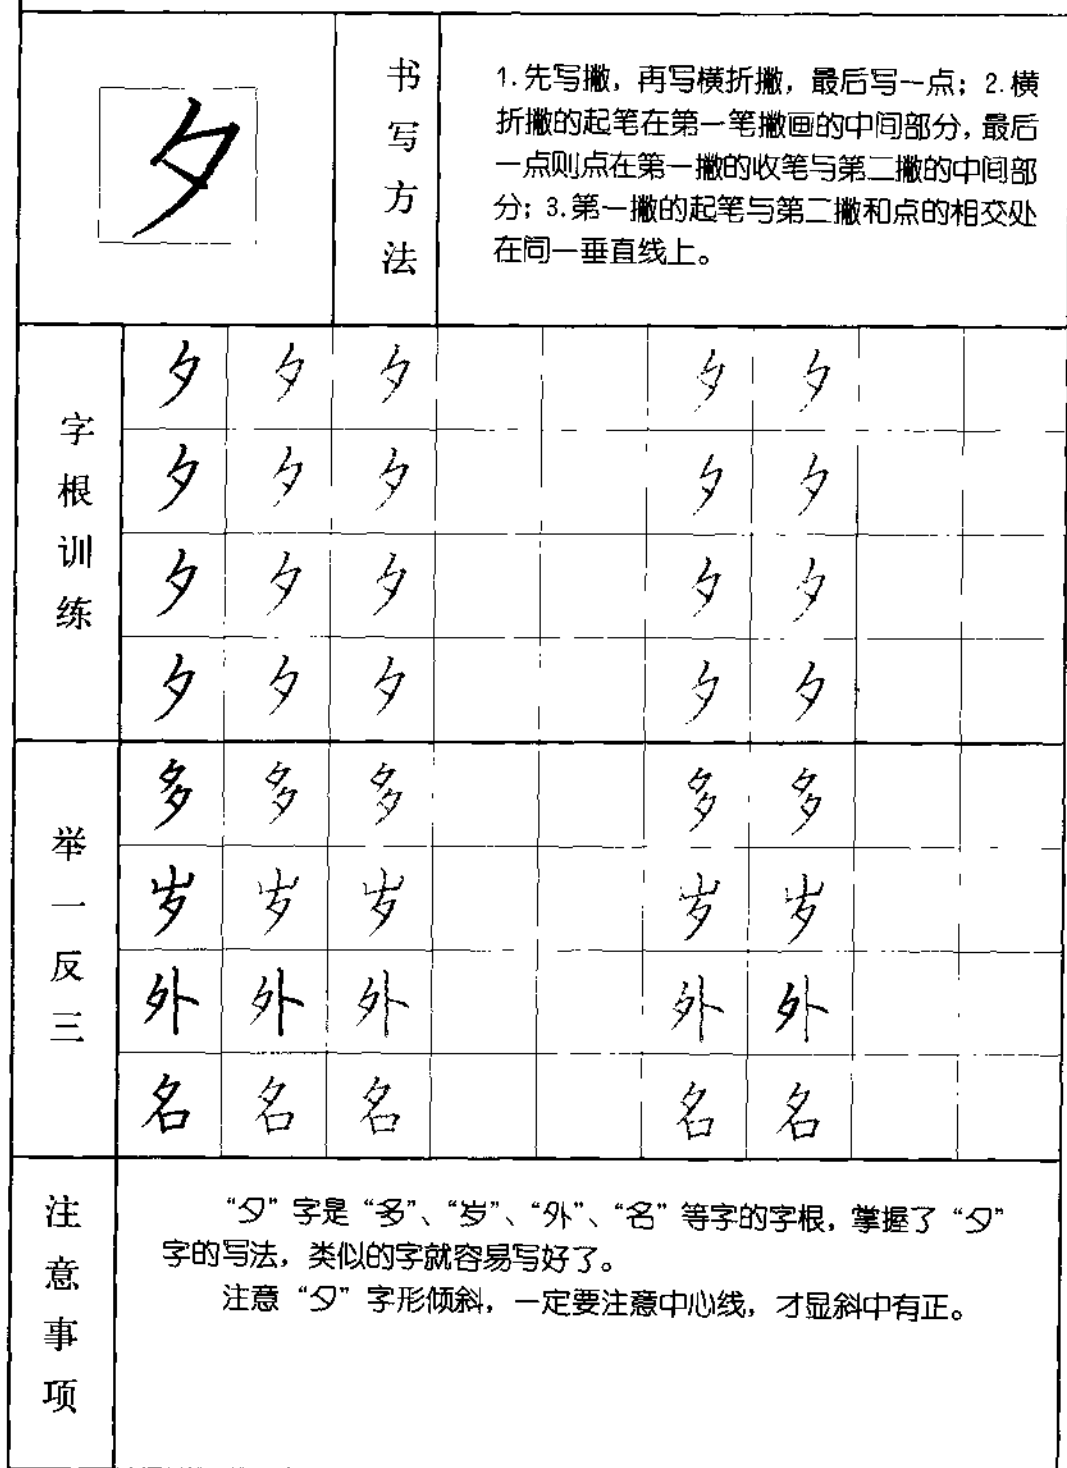 夕
书写方法
1.先写撇，再写横折撇，最后写一点；2.横
折撇的起笔在第一笔撇画的中间部分，最后
一点则点在第一撇的收笔与第二撇的中间部
分；3.第一撇的起笔与第二撇和点的相交处
在同一垂直线上。
字根训练
夕 夕 夕 夕 夕
夕 夕 夕 夕 夕
夕 夕 夕 夕 夕
夕 夕 夕 夕 夕
举一反三
多 多 多 多 多
岁 岁 岁 岁 岁
外 外 外 外 外
名 名 名 名 名
注意事项
“夕”字是“多”、“岁”、“外”、“名”等字的字根，掌握了“夕”
字的写法，类似的字就容易写好了。
注意“夕”字形倾斜，一定要注意中心线，才显斜中有正。